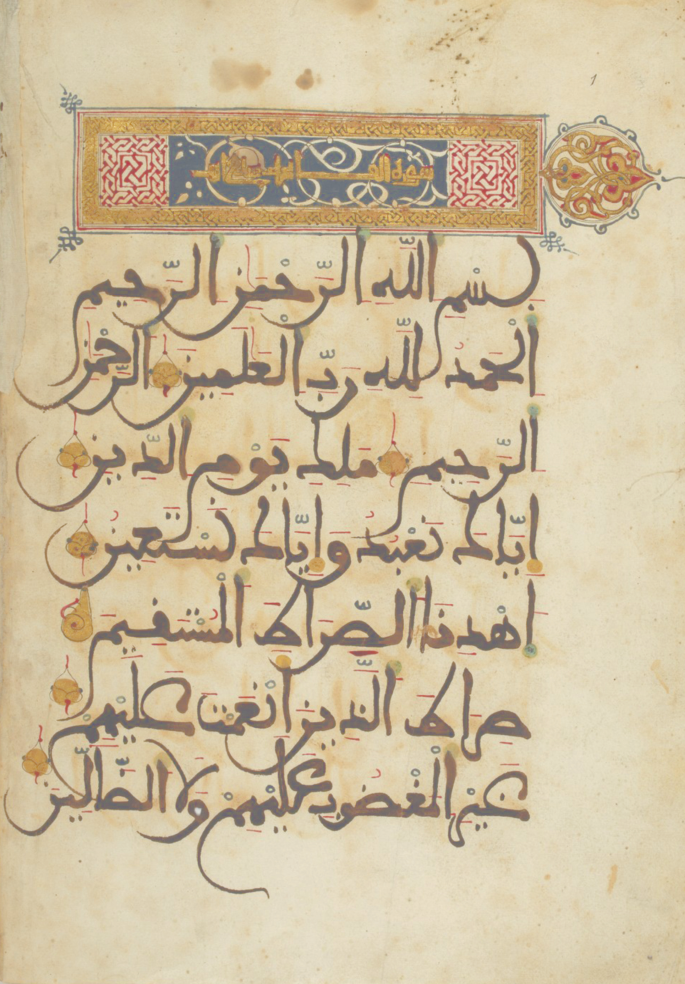 1
سورة
بسم الله الرحمن الرحيم
الحمد لله رب العلمين الرحمن
الرحيم ملك يوم الدين
اياك نعبد واياك نستعين
اهدنا الصراط المستقيم
صراط الذين انعمت عليهم
غير المغضوب عليهم ولا الضالين